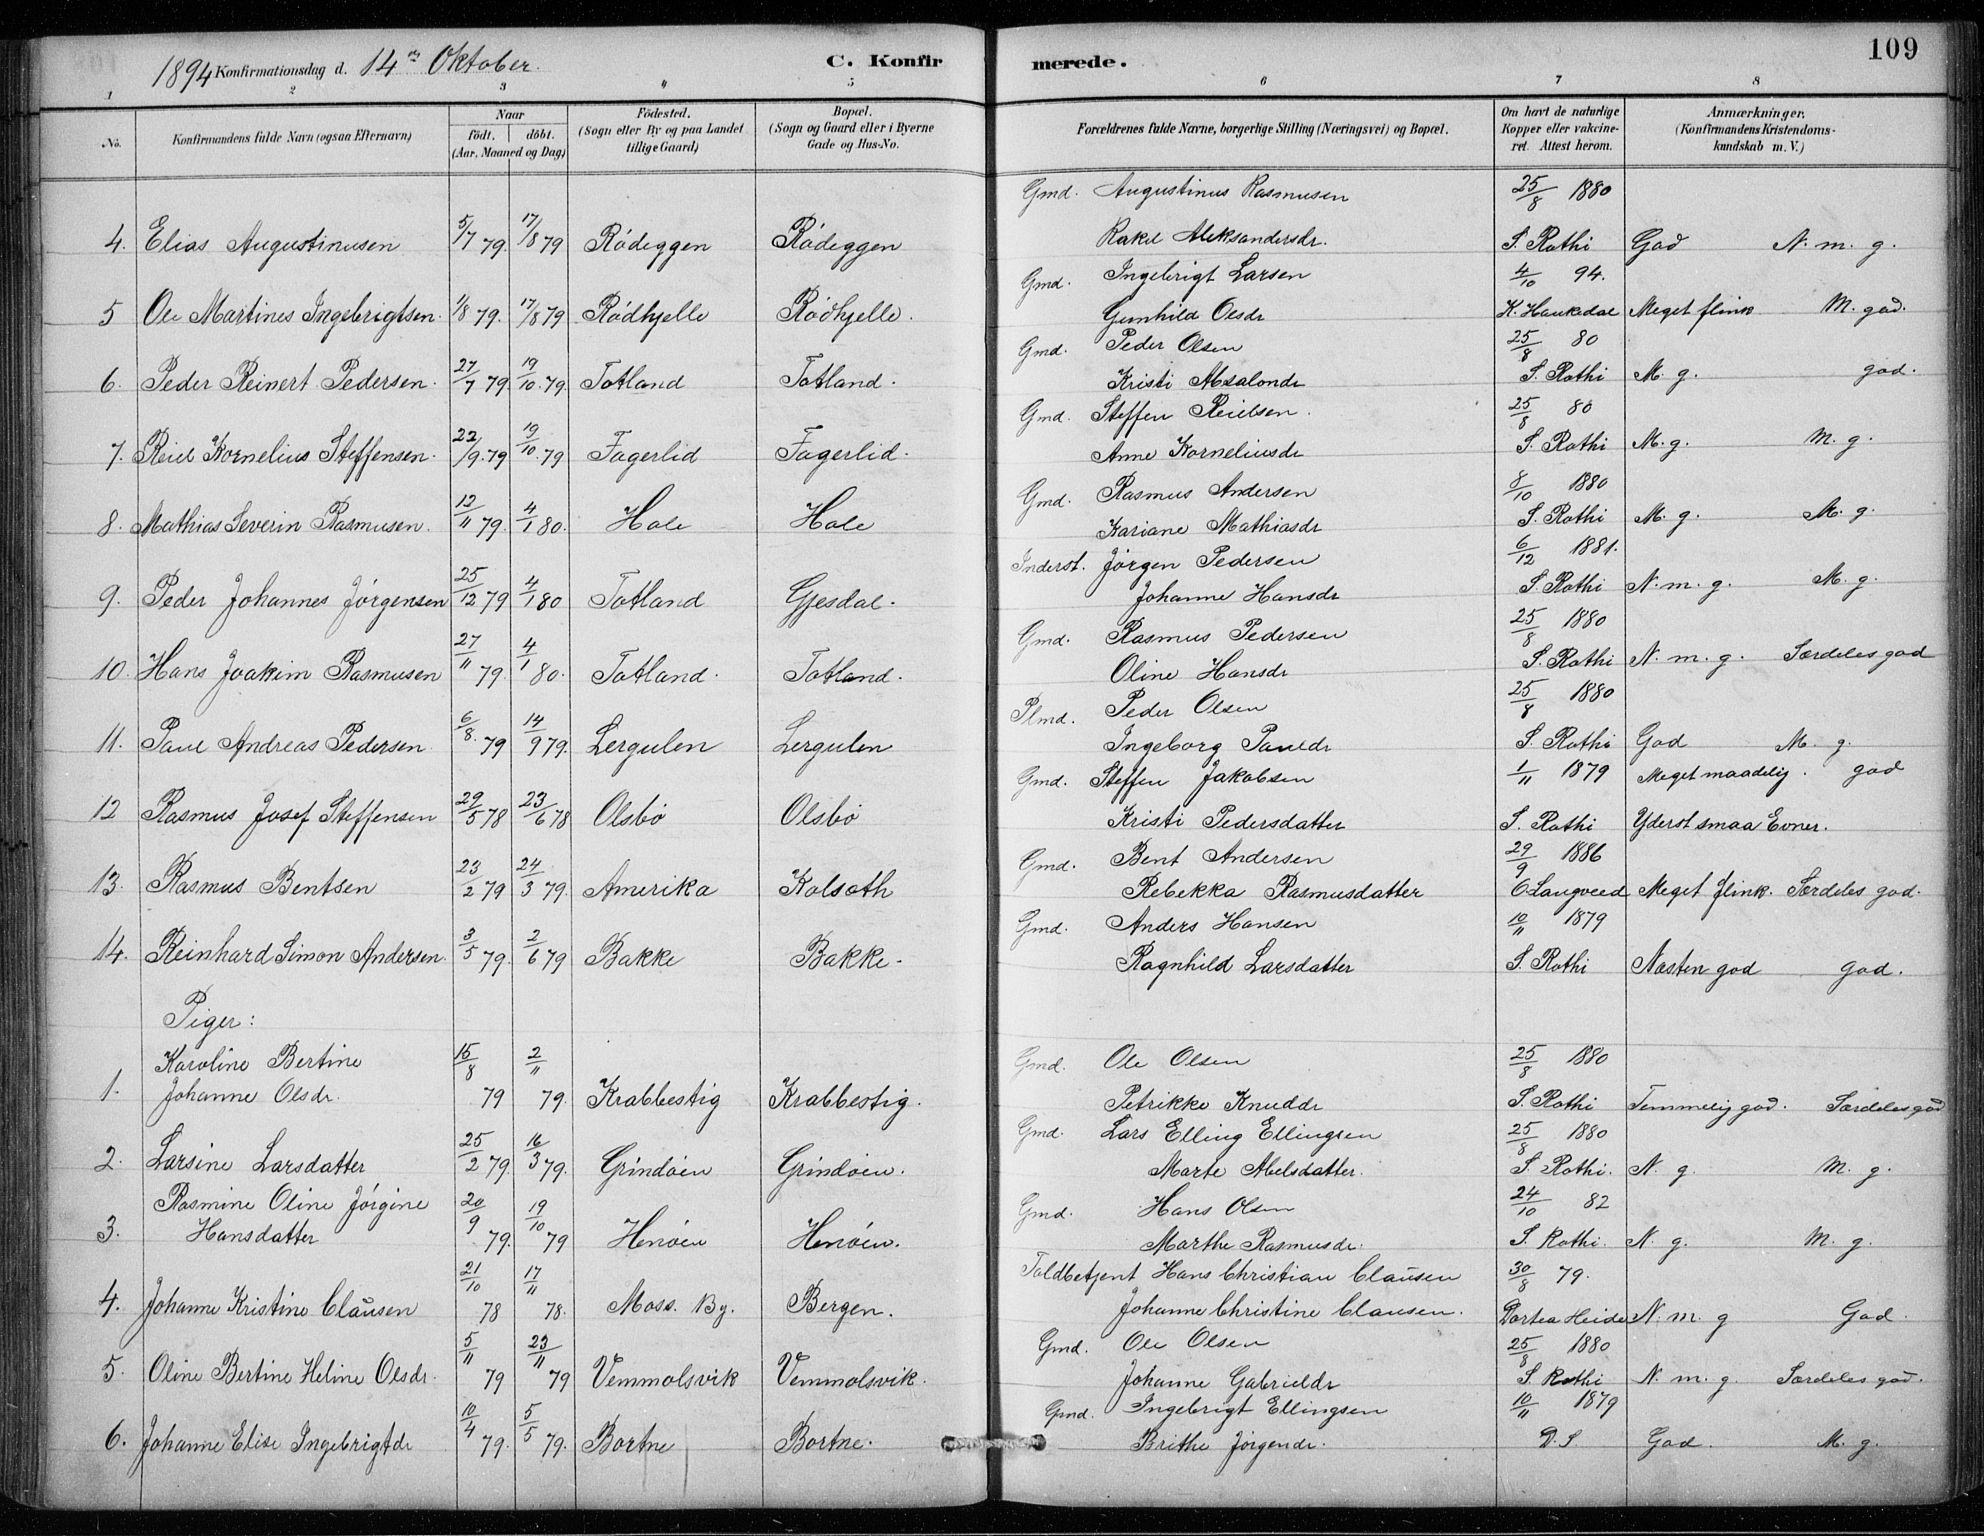 1894 Konfirmationsdag d. 14de Oktober. C. Konfirmerede. 109
1 2 3 4 5 6 7 8
No. Konfirmandens fulde Navn (ogsaa Efternavn) Naar födt. döbt. (Aar, Maaned og Dag) Födested. (Sogn eller By og paa Landet tillige Gaard) Bopæl. (Sogn og Gaard eller i Byerne Gade og Hus-No. Forældrenes fulde Navne, borgerlige Stilling (Næringsvei) og Bopæl. Om havt de naturlige Kopper eller vakcineret. Attest herom. Anmærkninger. (Konfirmandens Kristendomskundskab m. V.)
Gmd. Augustinus Rasmusen 25/8 1880
4. Elias Augustinusen 5/7 79. 17/8 79 Rödeggen Rödeggen Rakel Aleksandersdr. S. Rothi God N. m. g.
Gmd. Ingebrigt Larsen 4/10 94.
5 Ole Martines Ingebrigtsen. 1/8 79. 17/8 79 Rödhjelle Rödhjelle. Gunhild Olsdr K. Haukedal Meget flink M. god.
Gmd. Peder Olsen 25/8 80
6. Peder Reinert Pedersen. 27/7 79 19/10 79. Totland Totland. Kristi Absalondr S. Rothi M. g. god.
Gmd. Steffen Reielsen. 25/8 80
7. Reiel Kornelius Steffensen. 22/9. 79 19/10 79 Fagerlid Fagerlid. Anne Korneliusdr S. Rothi M. g. M. g.
Gmd. Rasmus Andersen 8/10 1880
8. Mathias Severin Rasmusen. 12/11 79. 4/1 80. Hole Hole Kariane Mathiasdr S. Rothi M. g. M. g.
Inderst. Jörgen Pedersen 6/12 1881.
9. Peder Johannes Jörgensen 25/12 79 4/1 80 Totland Gjesdal. Johanne Hansdr S. Rothi N. m. g. M. g.
Gmd. Rasmus Pedersen 25/8 1880
10. Hans Joakim Rasmusen 27/11 79. 4/1 80. Totland. Totland. Oline Hansdr S. Rothi N. m. g. Særdeles god
Plmd. Peder Olsen 25/8 1880
11. Paul Andreas Pedersen 6/8. 79 14/9 79. Lergulen Lergulen Ingeborg Pauldr S. Rothi God M. g.
Gmd. Steffen Jakobsen 1/11 1879 Meget maadelig. god
12 Rasmus Josef Steffensen 29/5 78 23/6 78 Olsbö Olsbö Kristi Pedersdatter S. Rothi Yderst smaa Evner.
Gmd. Bent Andersen 29/9 1886
13. Rasmus Bentsen 23/2 79 24/3 79. Amerika Kolsoth Rebekka Rasmusdatter O Laugveed Meget flink. Særdeles god.
Gmd. Anders Hansen 10/11 1879
14. Reinhard Simon Andersen. 3/5 79. 2/6 79 Bakke Bakke. Ragnhild Larsdatter S. Rothi Næsten god god.
Piger:
Karoline Bertine 15/8 2/11 Gmd. Ole Olsen 25/8 1880
1. Johanne Olsdr. 79 79. Krabbestig Krabbestig. Petrikke Knuddr S. Rothi Temmelig god. Særdeles god
Gmd. Lars Elling Ellingsen 25/8 1880
2. Larsine Larsdatter 25/2 79. 16/3 79. Grindöen Grindöen. Marte Abelsdatter. S. Rothi. N. g. M. g.
Rasmine Oline Jörgine 20/9 19/10 Gmd. Hans Olsen 24/10 82
3. Hansdatter 79. 79 Henöen Henöen. Marthe Rasmusdr. S. Rothi. N. g. M. g.
21/10 17/11 Toldbetjent Hans Christian Clausen 30/8 79.
4. Johanne Kristine Clausen 78 78. Moss. By. Bergen. Johanne Christine Clausen. Dortea Heide N. m. g God.
5/11 23/11 Gmd. Ole Olsen 25/8 1880
5. Oline Bertine Heline Olsdr. 79 79 Vemmolsvik Vemmolsvik. Johanne Gabrieldr S. Rothi N. m. g. Særdeles god.
Gmd. Ingebrigt Ellingsen 10/11 1879
6. Johanne Elise Ingebrigtdr 10/4 79. 5/5 79. Bortne Bortne. Brithe Jörgendr. D. S God. M. g.